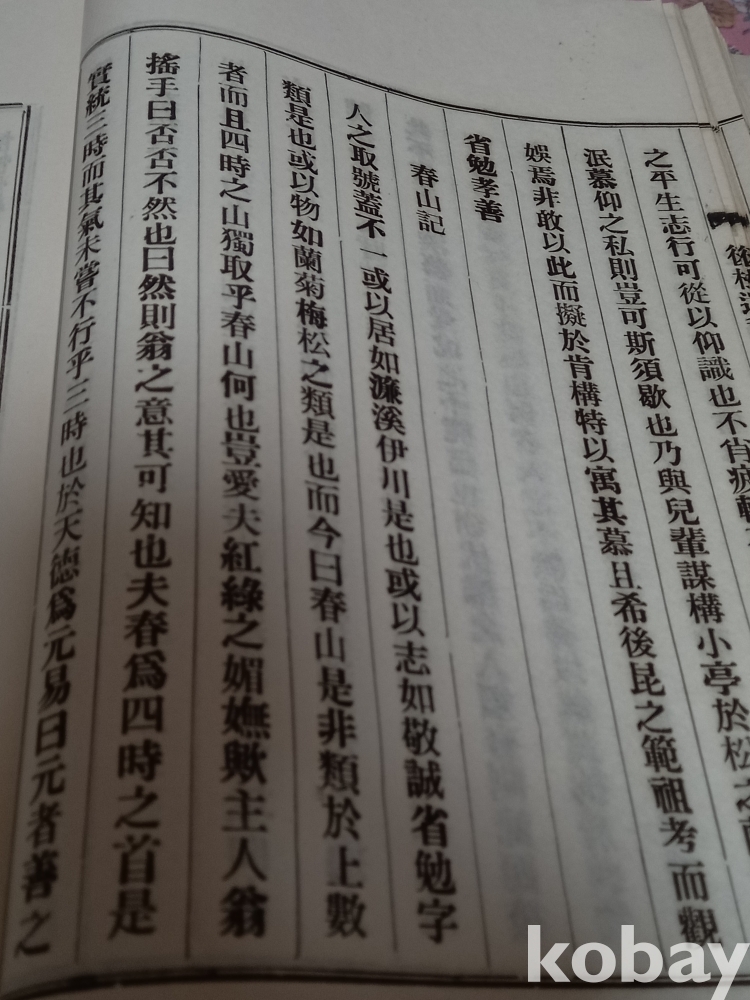 之平生志行可從以仰識也不肖
泯慕仰之私則豈可斯須歇也乃與兒輩謀構小亭於松之
娛焉非敢以此而擬於肯構特以寓其慕且希後昆之範祖考而觀
省勉孝善
春山記
人之取號蓋不一或以居如濂溪伊川是也或以志如敬誠省勉字
類是也或以物如蘭菊梅松之類是也而今曰春山是非類於上數
者而且四時之山獨取乎春山何也豈愛夫紅綠之媚嫵歟主人翁
搖手曰否否不然也曰然則翁之意其可知也夫春爲四時之首是
實統三時而其氣未嘗不行乎三時也於天德爲元易曰元者善之
kobay